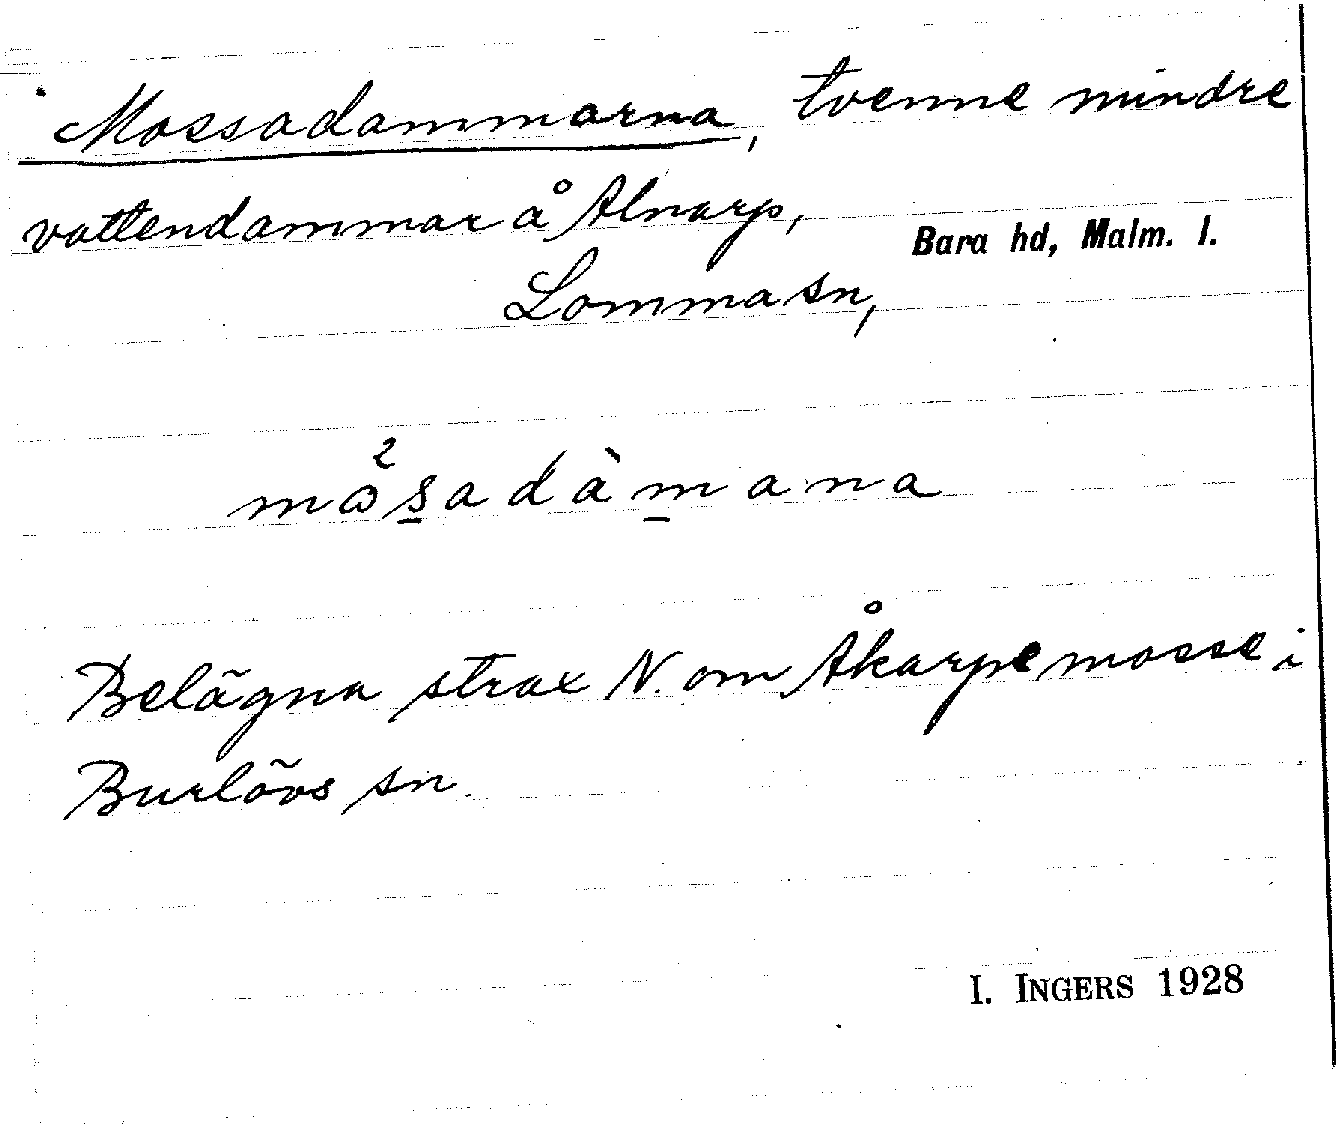 Mossadammarna, tvenne mindre
vattendammar å Alnarp,
Bara hd, Malm. l.
Lomma sn,
mɷ̊²s̲adàm̲ana
Belägna strax N. om Åkarpe mosse i
Burlövs sn.
I. INGERS 1928